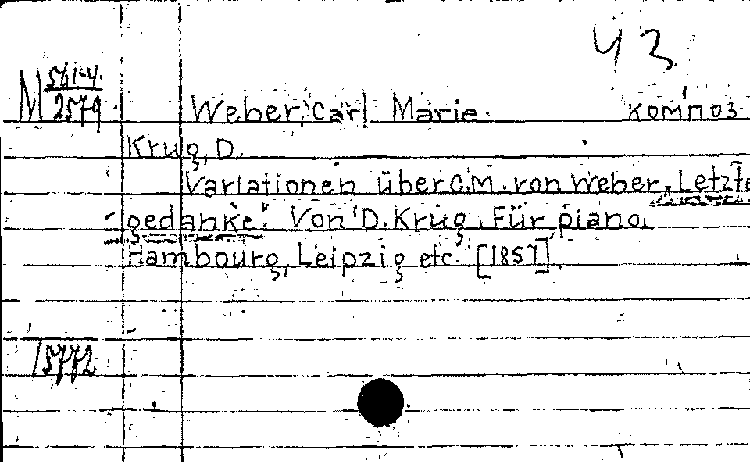 43
M 561-4.
2579
Weber, Carl Marie. композ
Krug, D.
Variationen über C.M. von Weber, "Letzte
gedanke". Von D. Krug. Für piano.
Hambourg, Leipzig etc. [1857].
15772